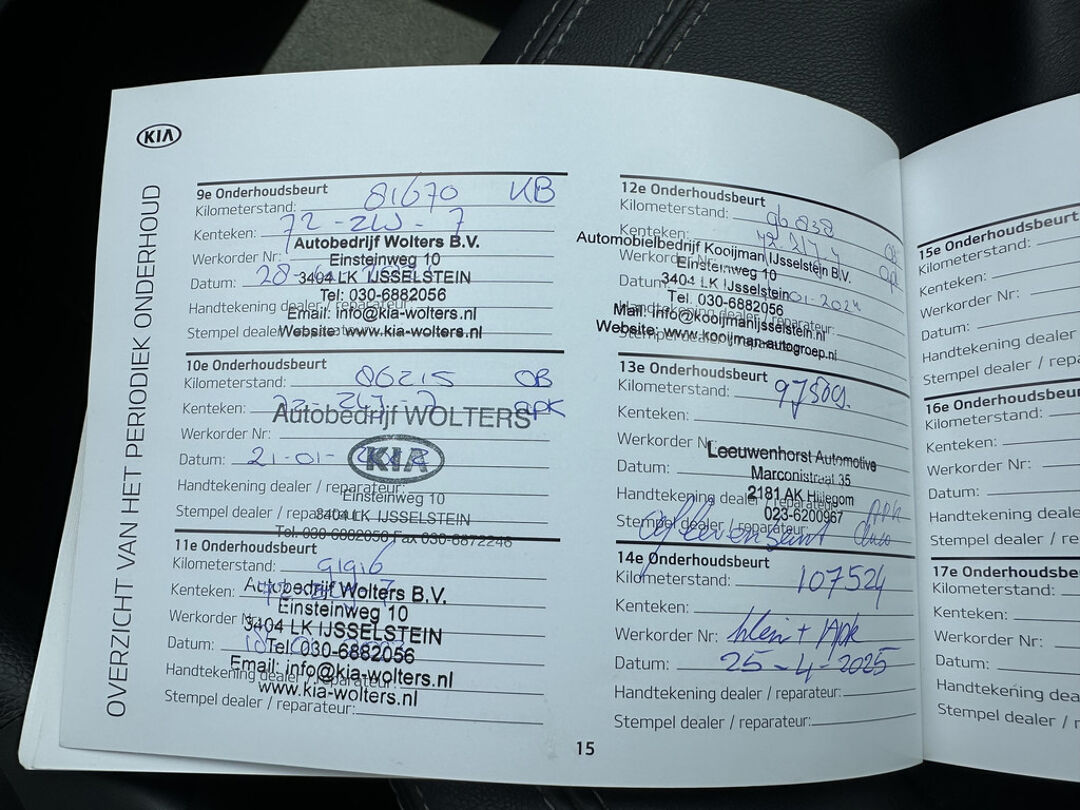 KIA
OVERZICHT VAN HET PERIODIEK ONDERHOUD
9e Onderhoudsbeurt
Kilometerstand: 81670 KB
Kenteken: 72-ZLJ-7
Autobedrijf Wolters B.V.
Werkorder Nr: Einsteinweg 10
Datum: 28 3404 LK IJSSELSTEIN
Tel: 030-6882056
Handtekening dealer / reparateur:
Email: info@kia-wolters.nl
Stempel dealer Website: www.kia-wolters.nl
10e Onderhoudsbeurt
Kilometerstand: 86215 OB
Kenteken: 72-ZLJ-7 apk
Autobedrijf WOLTERS
Werkorder Nr:
Datum: 21-01-
KIA
Handtekening dealer / reparateur:
Einsteinweg 10
Stempel dealer / reparateur:
3404 LK IJSSELSTEIN
Tel. 030-6882056 Fax 030-6872246
11e Onderhoudsbeurt
Kilometerstand: 91916
Kenteken: Autobedrijf Wolters B.V.
Einsteinweg 10
Werkorder Nr: 3404 LK IJSSELSTEIN
Datum: Tel: 030-6882056
Email: info@kia-wolters.nl
Handtekening dealer / reparateur:
www.kia-wolters.nl
Stempel dealer / reparateur:
12e Onderhoudsbeurt
Kilometerstand: 96.838
Kenteken:
Automobielbedrijf Kooijman IJsselstein B.V.
Werkorder Nr: Einsteinweg 10 apk
Datum: 3404 LK IJsselstein 01-2024
Tel. 030-6882056
Handtekening dealer / reparateur:
Mail: info@kooijmanijsselstein.nl
Stempel dealer
Website: www.kooijman-autogroep.nl
13e Onderhoudsbeurt
Kilometerstand: 97509.
Kenteken:
Werkorder Nr:
Leeuwenhorst Automotive
Datum: Marconistraat 35
Handtekening dealer 2181 AK Hillegom
023-6200967 APK
Stempel dealer / reparateur:
afleverbeurt
14e Onderhoudsbeurt
Kilometerstand: 107524
Kenteken:
Werkorder Nr: klein + Apk
Datum: 25-4-2025
Handtekening dealer / reparateur:
Stempel dealer / reparateur:
15
15e Onderhoudsbeurt
Kilometerstand:
Kenteken:
Werkorder Nr:
Datum:
Handtekening dealer
Stempel dealer / repa
16e Onderhoudsbe
Kilometerstand:
Kenteken:
Werkorder Nr:
Datum:
Handtekening deale
Stempel dealer / re
17e Onderhoudsbe
Kilometerstand:
Kenteken:
Werkorder Nr:
Datum:
Handtekening dea
Stempel dealer / r